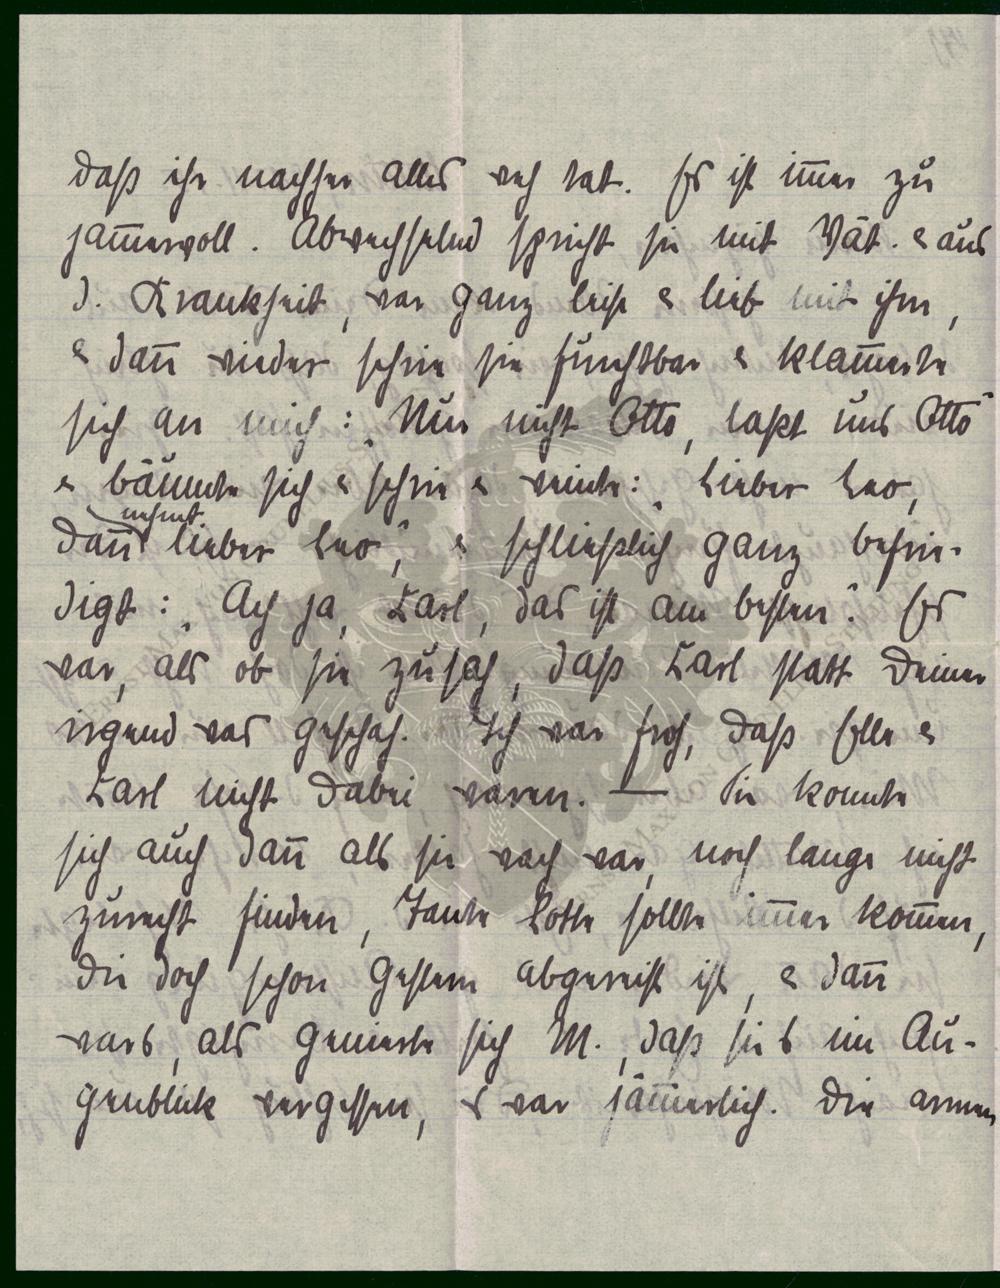 daß ihr nachher alles weh tat. Es ist im̄er zu
jam̄ervoll. Abwechselnd spricht sie mit Vät. & aus
d. Krankheit, war ganz leise & lieb mit ihm,
& dan̄ wieder schrie sie furchtbar & klam̄erte
sich an mich: „Nur nicht Otto, laßt uns Otto"
& bäumte sich & schrie & weinte: „Lieber Leo,
nehmt
dan̄ lieber Leo", & schließlich ganz befrie-
digt: „Ach ja, Karl, das ist am besten". Es
war, als ob sie zusah, daß Karl statt Deiner
irgend was geschah. Ich war froh, daß Elle &
Karl nicht dabei waren. — Sie konnte
sich auch dan̄ als sie wach war, noch lange nicht
zurecht finden, Tante Lotte sollte im̄er kom̄en,
die doch schon gestern abgereist ist, & dan̄
wars, als genierte sich M., daß sie's im Au-
genblick vergessen, es war jäm̄erlich. Die armen